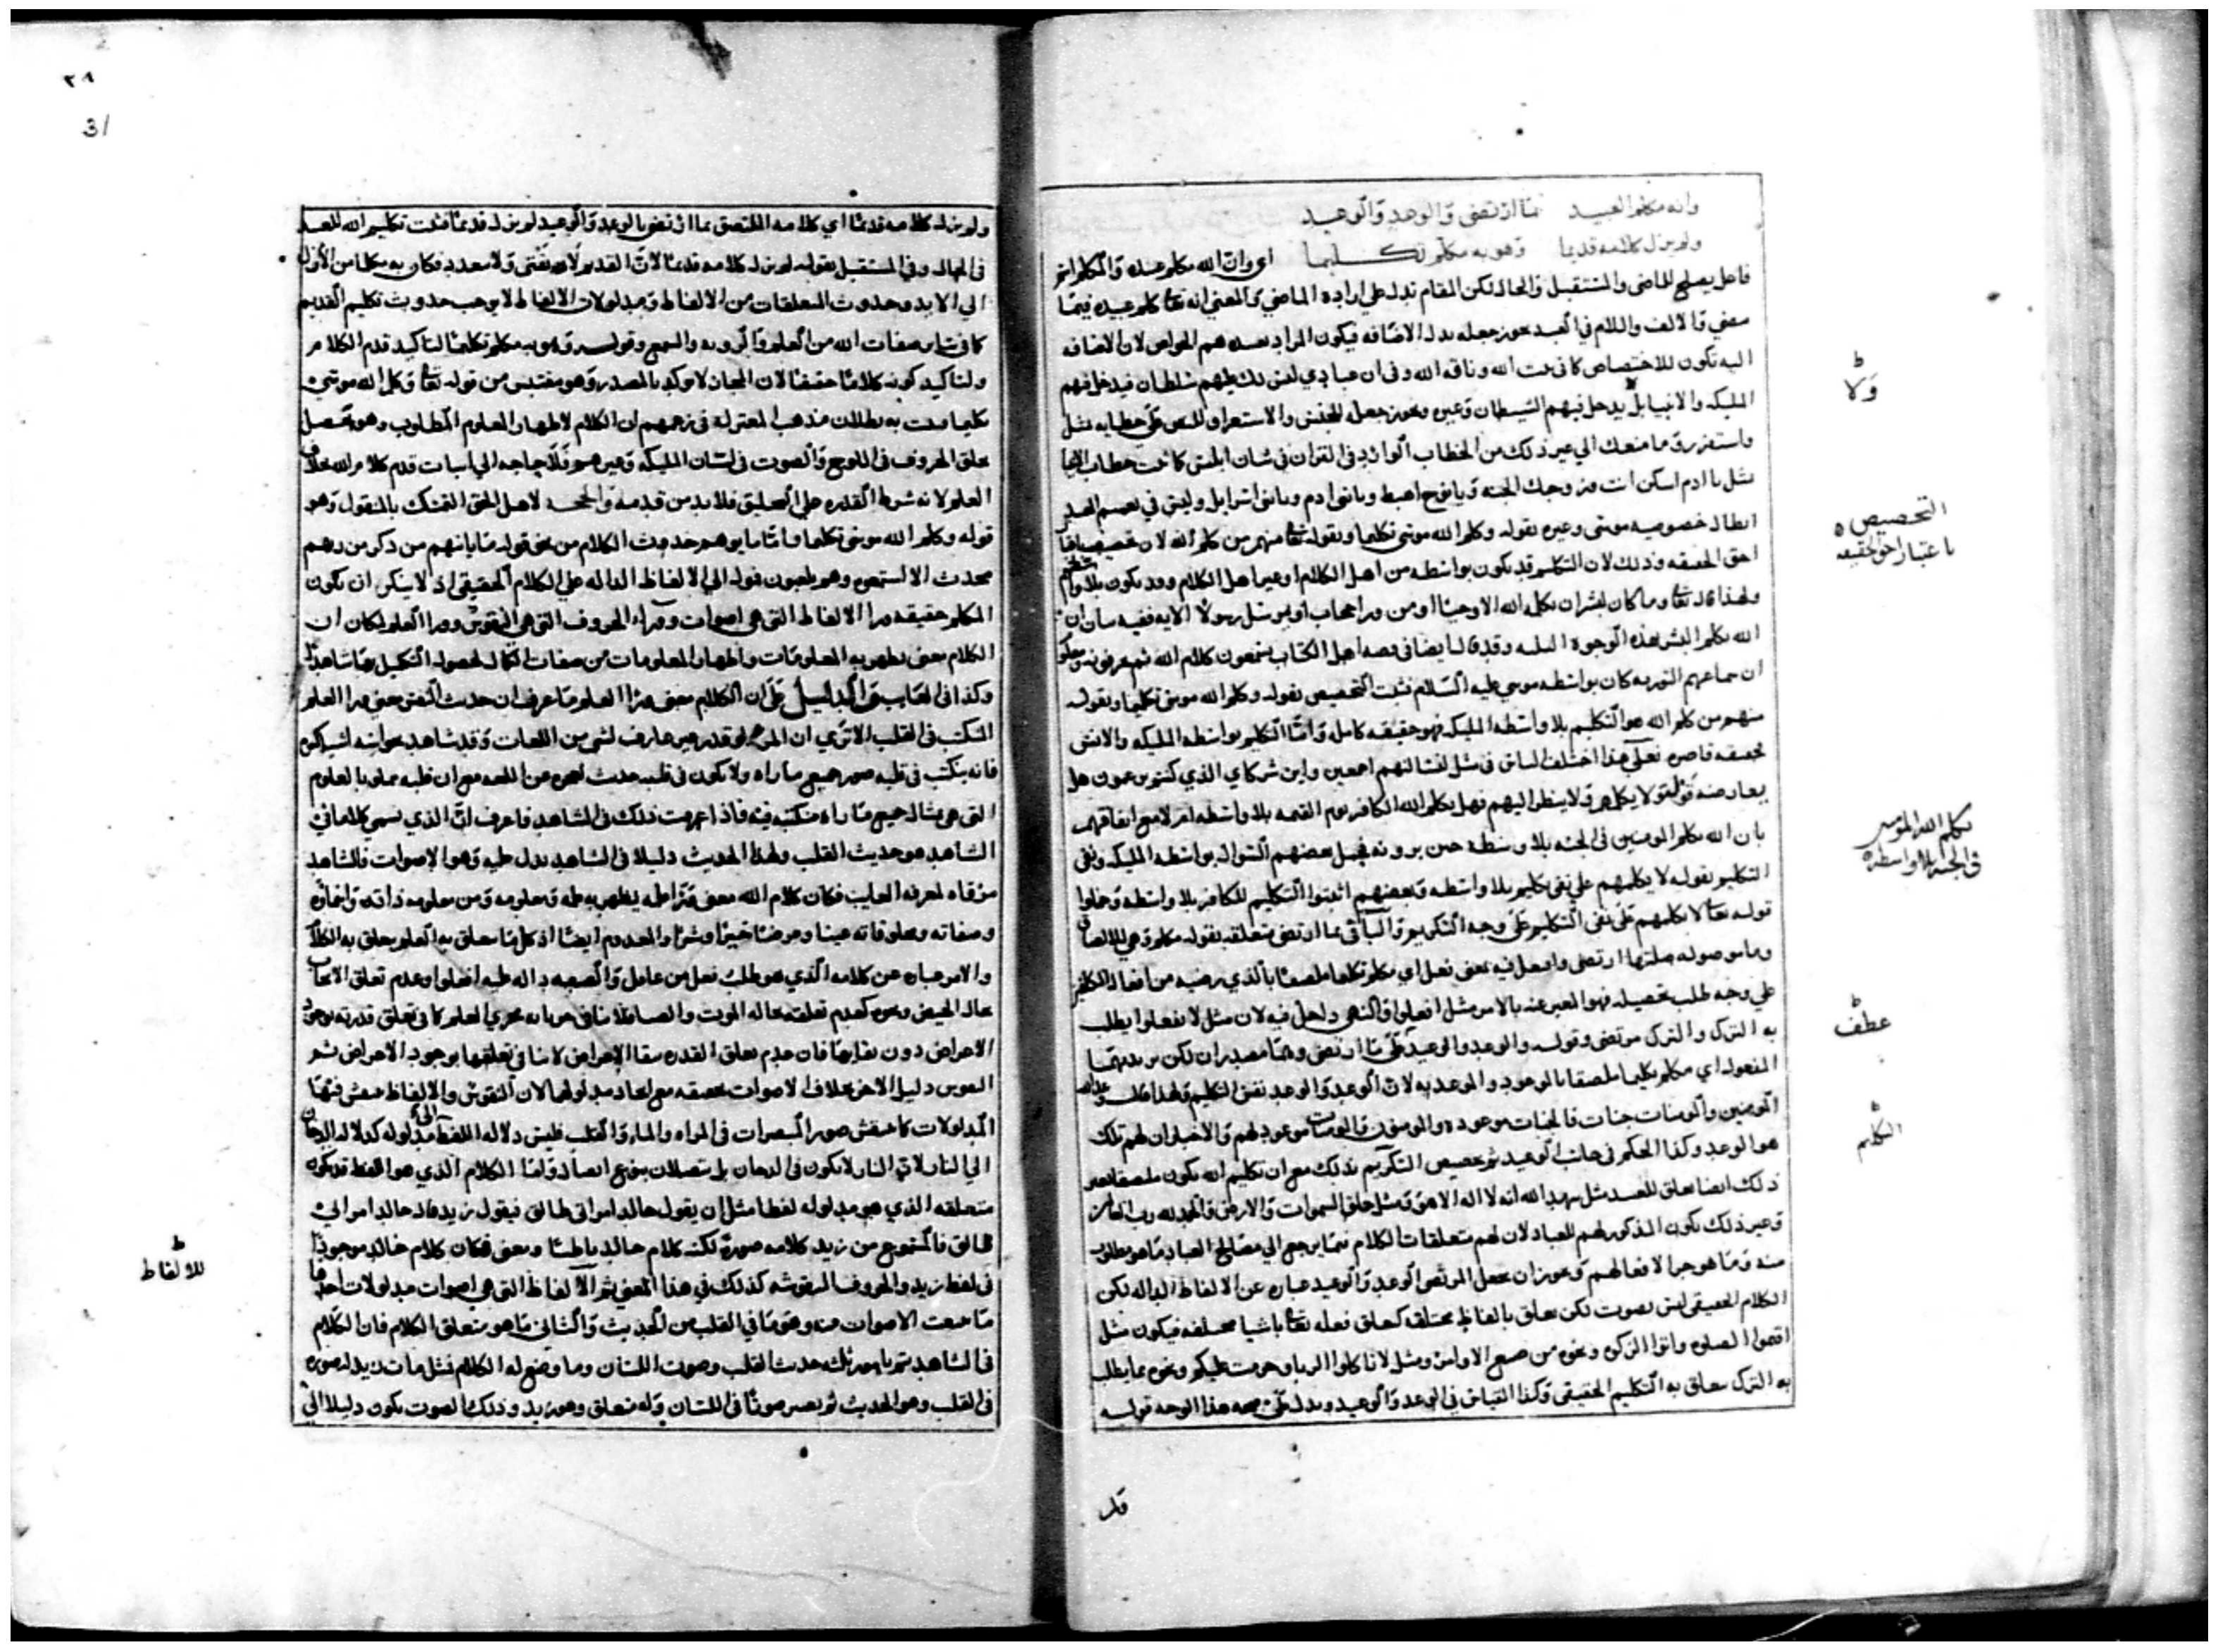 وانه مكلم العبيد بما ارتضى والوعد والوعيد
ولم يزل كلامه قديما وهو به مكلم تكليما اي وان الله مكلم عبيده والمكلم اسم
فاعل يصلح للماضي والمستقبل والحال لكن المقام يدل على ارادة الماضي والمعنى انه تعا كلم عبيده فيما
مضى والالف واللام في العبد يجوز جعله بدل الاضافه فيكون المراد بعبيده هم الخواص لان الاضافه
اليه تكون للاختصاص كما في بيت الله وناقة الله وفي ان عبادي ليس لك عليهم سلطان فيدخل فيهم
المليكه والانبيا بل يدخل فيهم الشيطان وغيره ويجوز جعله للجنس والاستغراق للنص على خطابه مثل
واستفزز وما منعك الي غير ذلك من الخطاب الوارد في القران في شان ابليس كما ثبت خطاب الانبيا
مثل يا ادم اسكن انت وزوجك الجنه ويا نوح اهبط ويا بني ادم ويا بني اسرايل وليس في تعميم العبيد
ابطال خصوصيه موسى وغيره بقوله وكلم الله موسى تكليما وبقوله تعا منهم من كلم الله لان تخصيصهما
احق الحقيقه وذلك لان التكليم قد يكون بواسطه من اهل الكلام او غير اهل الكلام وقد يكون بلا واسطه
ولهذا قال تعا وما كان لبشر ان يكلمه الله الا وحيا او من ورا حجاب او يرسل رسولا الايه ففيه بيان ان
الله يكلم البشر بهذه الوجوه الثلثه وقد قال ايضا في قصه اهل الكتاب يسمعون كلام الله ثم يحرفونه
ان سماعهم التوريه كان بواسطه موسى عليه السلام فثبت التخصيص بقوله وكلم الله موسى تكليما وبقوله
منهم من كلم الله هو التكليم بلا واسطه المليكه فهو حقيقه كامله واما التكليم بواسطه المليكه والانس
فحقيقه قاصره فعلى هذا اختلف الناس في مثل لنسالنهم اجمعين واين شركاي الذي كنتم تزعمون هل
يعارضه قوله ولا يكلمهم ولا ينظر اليهم فهل يكلم الله الكافر يوم القيمه بلا واسطه ام لا مع اتفاقهم
بان الله يكلم المومنين في الجنه بلا واسطه حين يرونه فجعل بعضهم السوال بواسطه المليكه ونفى
التكليم بقوله لا يكلمهم على نفي تكليم بلا واسطه وبعضهم اثبتوا التكليم للكافر بلا واسطه وحملوا
قوله تعا لا يكلمهم على نفي التكليم على وجه التكريم والباء في بما ارتضى متعلقه بقوله مكلم وهي للالصاق
وما موصوله صلتها ارتضى وافتعل فيه بمعنى فعل اي مكلم تكليما ملصقا بالذي رضيه من افعال المكلفين
على وجه طلب تحصيله فهو المعبر عنه بالامر مثل افعلوا والنهي داخل فيه لان مثل لا تفعلوا يطلب
به الترك والترك مرتضى وقوله والوعد والوعيد على ما ارتضى وهما مصدران لكن يريد بهما
المفعول اي مكلم تكليما ملصقا بالموعود والموعد به لان الوعيد والوعد نفس التكليم ولهذا قلنا وعد الله
المومنين والمومنات جنات فالجنات موعوده والمومنون والمومنات موعود لهم والاخبار ان لهم تلك
هو الوعد وكذا الحكم في جانب الوعيد ثم تخصيص التكريم بذلك مع ان تكليم الله يكون ملصقا بغير
ذلك ايضا تعلق للعبيد مثل شهد الله انه لا اله الا هو ومثل خلق السموات والارض والحمد لله رب العالمين
وغير ذلك يكون المذكور لهم للعباد لان لهم متعلقات الكلام فيما يرجع الي مصالح العباد ما هو مطلوب
منه وما هو جزا لافعالهم ويجوز ان يجعل المرتضى الوعد والوعيد عباره عن الالفاظ الداله لكن
الكلام الحقيقي ليس بصوت لكن تعلق بالفاظ مختلفه كتعلق فعله تعا باشيا مختلفه فيكون مثل
اقيموا الصلوه واتوا الزكوه ونحوه من صيغ الاوامر ومثل لا تاكلوا الربا وحرمت عليكم ونحوه مما يطلب
به الترك تعلق به التكليم الحقيقي وكذا القياس في الوعد والوعيد ويدل على صحه هذا الوجه قوله
ولا
التخصيص
باعتبار احق الحقيقه
تكلم الله المومنين
في الجنه بلا واسطه
عطف
التكليم
٢٨
31
ولم يزل كلامه قديما اي كلامه الملتصق بما ارتضى بالوعد والوعيد لم يزل قديما فثبت تكليم الله العبد
في الحال وفي المستقبل بقوله لم يزل كلامه قديما لان القديم لا يفنى ولا يتعدد فكان به مكلما من الازل
الي الابد وحدوث المتعلقات من الالفاظ ومدلولات الالفاظ لا يوجب حدوث تكليم القديم
كما في سائر صفات الله من العلم والرويه والسمع وقوله وهو به مكلم تكليما لتاكيد قدم الكلام
ولتاكيد كونه كلاما حقيقيا لان المجاز لا يوكد بالمصدر وهو مقتبس من قوله تعا وكلم الله موسى
تكليما وثبت به بطلان مذهب المعتزله في زعمهم ان الكلام لاظهار المعلوم المطلوب وهو يحصل
بخلق الحروف في اللوح والصوت في لسان المليكه وغيرهم فلا حاجه الي اثبات قدم كلام الله بخلاف
العلم لانه شرط القدره على التخليق فلا بد من قدمه والحجه لاهل الحق التمسك بالمنقول وهو
قوله وكلم الله موسى تكليما واما ما يوهم حدوث الكلام من نحو قوله ما ياتيهم من ذكر من ربهم
محدث الا استمعوه وهم يلعبون فهو الي الالفاظ الداله على الكلام الحقيقي اذ لا ينكر ان يكون
الكلام حقيقه ورا الالفاظ التي هي اصوات ووراء الحروف التي هي النقوش وورا العلم لمكان ان
الكلام معنى يظهر به المعلومات واظهار المعلومات من صفات الكمال لحصوله التكميل بها شاهدا
وكذا في الغايب والدليل على ان الكلام معنى ورا العلم ما عرف ان حديث النفس معنى ورا العلم
المكتسب في القلب الا ترى ان المرء لو قدر غير عارف لشي من اللغات وقد شاهد بحواسه اشيا كثيره
فانه ينكتب في قلبه صور جميع ما راه ولا يكون في قلبه حديث لعجزه عن اللغه مع ان قلبه مملو بالعلوم
التي هي مثال جميع ما راه منكتبه فيه فاذا عرفت ذلك في الشاهد فاعرف ان الذي نسمي كلاما في
الشاهد هو حديث القلب ولهذا الحديث دليلا في الشاهد يدل عليه وهو الاصوات فالشاهد
مرقاه لمعرفه الغايب فكان كلام الله معنى ورا علمه يظهر به علمه ومعلومه ومن معلومه ذاته واسماوه
وصفاته ومخلوقاته عينا وعرضا خيرا وشرا والمعدوم ايضا اذ كل ما تعلق به العلم يعلق به الكلام
والامر عباره عن كلامه الذي هو طلب فعل من عامل والصيغه داله عليه افعلوا وعدم تعلق الايجاب
حال الحيض ونحوه كعدم تعلقه حاله الموت والصبا فلا ينافي جريانه مجرى العلم كما في تعلق قدرته بوجود
الاعراض دون بقايها فان عدم تعلق القدره ببقا الاعراض لا ينافي تعلقها بوجود الاعراض ثم
النقوش دليل الاخر بخلاف الاصوات بحقيقه مع اتحاد مدلولها لان النقوش والالفاظ منقش فيها
المدلولات كما تنقش صور المبصرات في المراه والماء والقلب فليس دلاله اللفظ الى مدلوله كدلاله الدخان
الي النار لان النار لا تكون في الدخان بل يتصلان بنوع اتصال واما الكلام الذي هو اللفظ قد يكون
متعلقه الذي هو مدلوله لفظا مثل ان يقول خالد امراتي طالق فيقول زيد قال خالد امراتي
طالق فالمسموع من زيد كلامه صورة لكنه كلام خالد باطنا ومعنى فكان كلام خالد موجودا
في لفظ زيد والحروف المنقوشه كذلك في هذا المعنى ثم الالفاظ التي هي اصوات مدلولات احدها
ما سمعت الاصوات منه وهو ما في القلب من الحديث والثاني ما هو متعلق الكلام فان الكلام
في الشاهد يتم بامور ثلثه حديث القلب وصوت اللسان وما وضع له الكلام فمثل مات زيد له صوره
في القلب وهو الحديث ثم يصير صوتا في اللسان وله متعلق وهو زيد وذلك الصوت يكون دليلا الي
للالفاظ